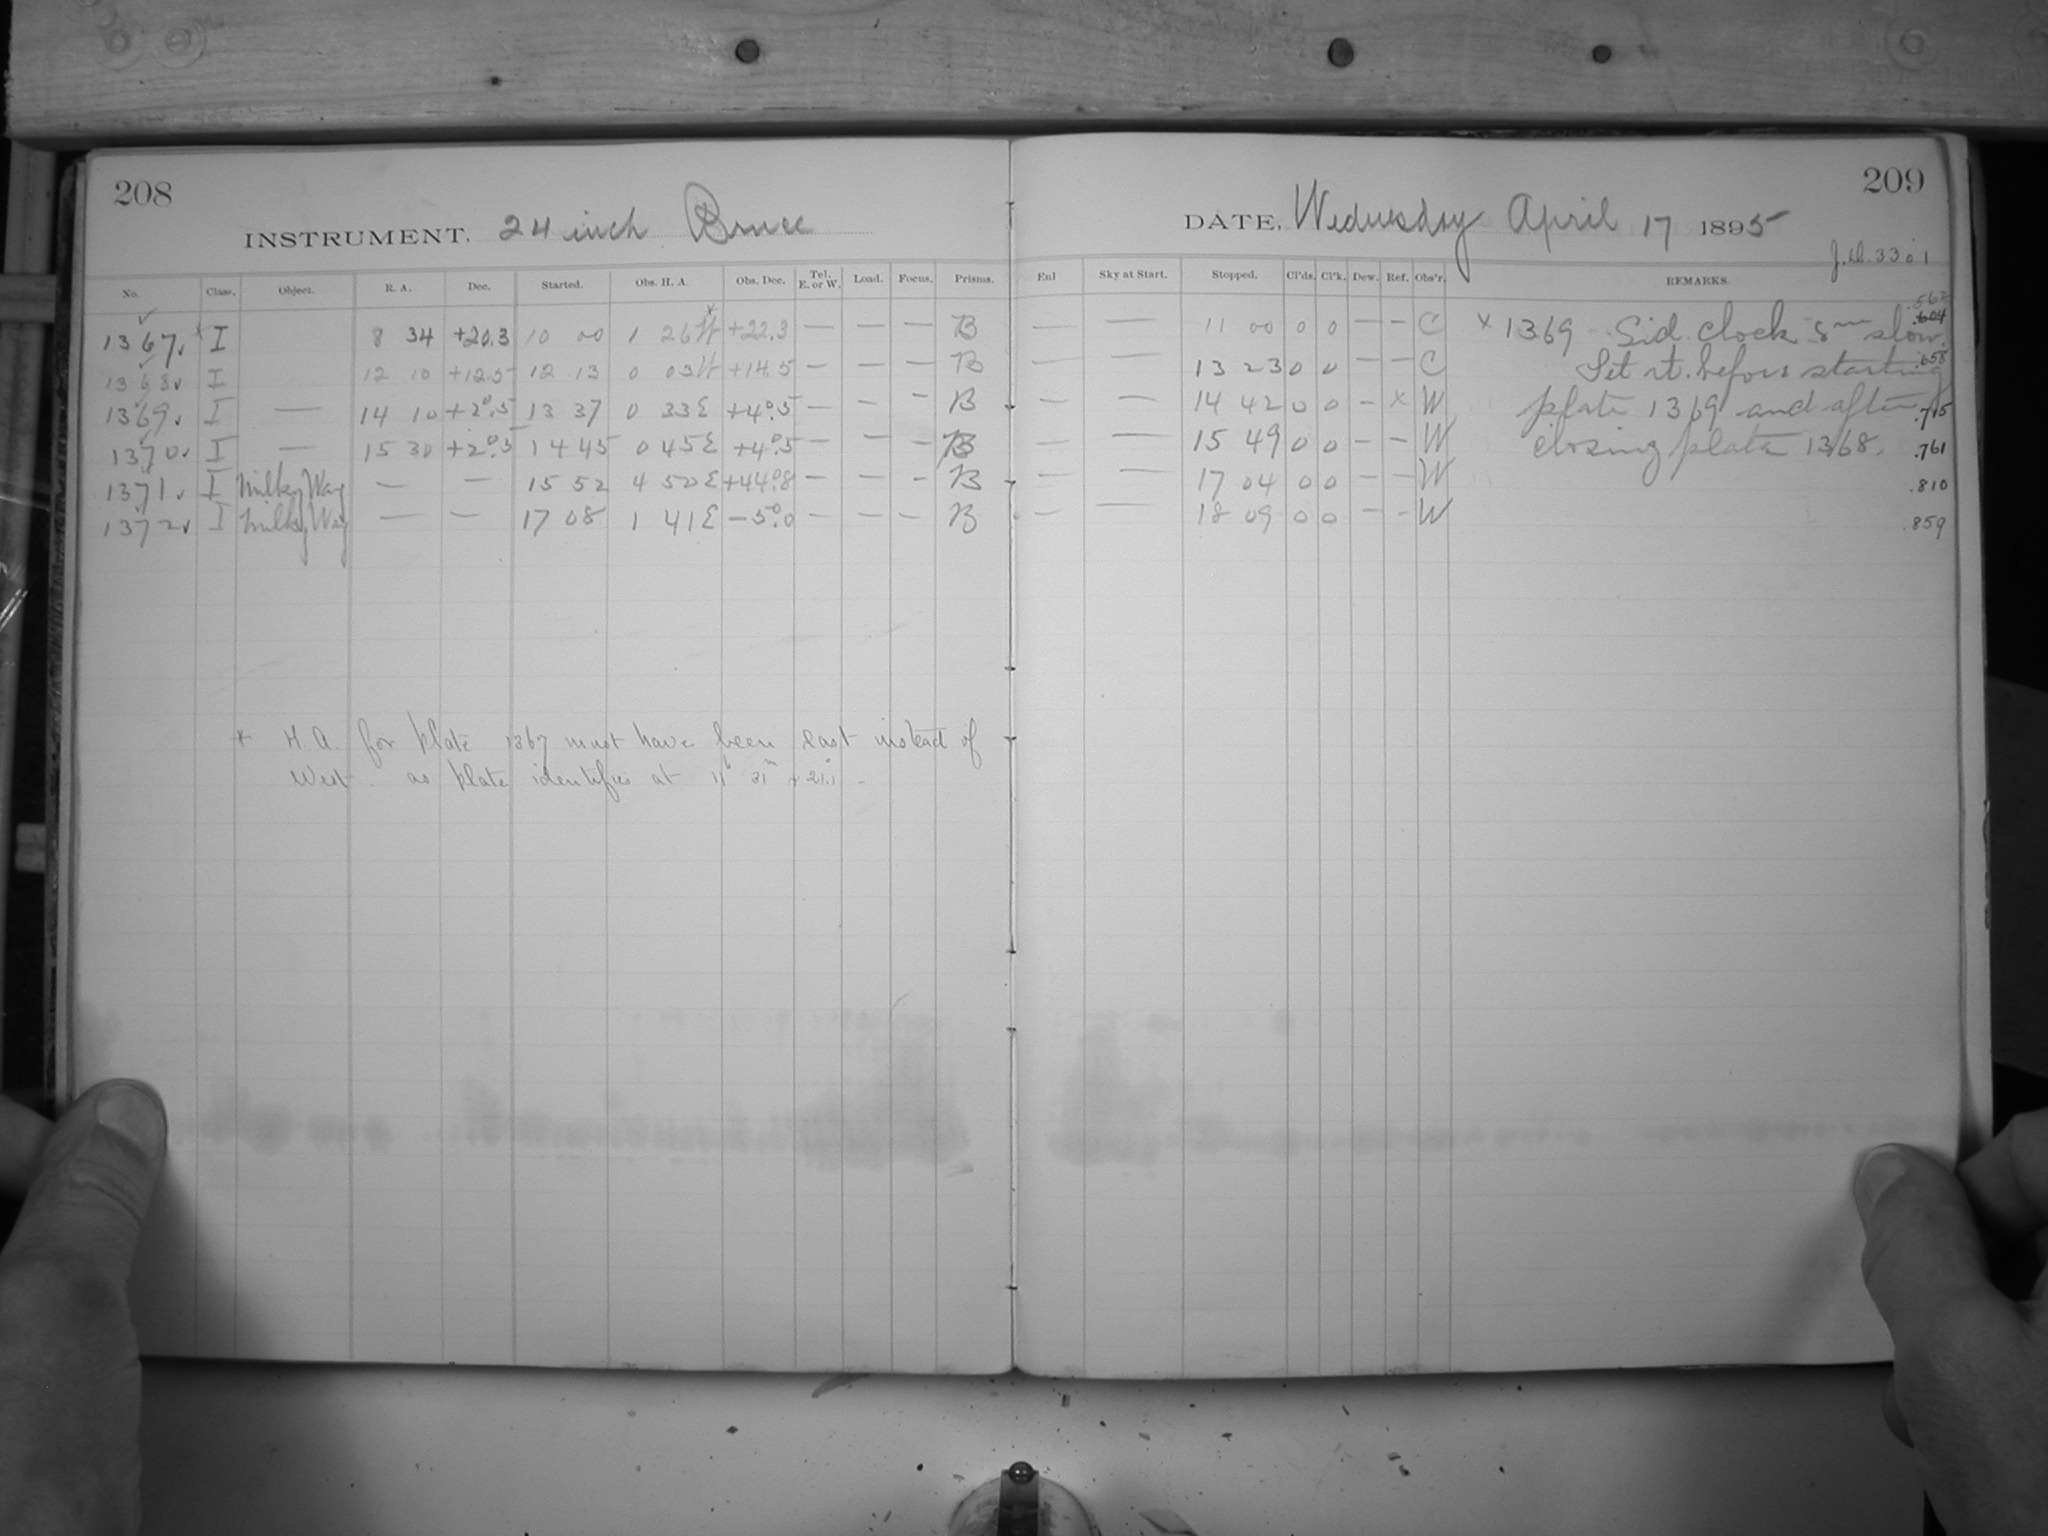 208
INSTRUMENT, 24 inch Bruce
No. Class. Object. R. A. Dec. Started. Obs. H. A. Obs. Dec. Tel. E. or W. Load. Focus. Prisms.
1367 * I 8 34 +20.3 10 00 1 26 W* +22.3 — — — B
1368 I 12 10 +12.5 12 13 0 03 W +14.5 — — — B
1369 I — 14 10 +2°.5 13 37 0 33 E +4°.5 — — — B
1370 I — 15 30 +2°.5 14 45 0 45 E +4°.5 — — — B
1371 I Milky Way — — 15 52 4 50 E +44°.8 — — — B
1372 I Milky Way — — 17 08 1 41 E —5°.0 — — — B
* H. A. for plate 1367 must have been east instead of
West as plate identifies at 11h 31m +21.1
209
DATE, Wednesday April 17 1895
J.D. 3301
Enl Sky at Start. Stopped. Cl'ds. Cl'k. Dew. Ref. Obs'r. REMARKS.
.562
— — 11 00 0 0 — — C × 1369 Sid. clock 8m slow. .604
— — 13 23 0 0 — — C Set it before starting .658
— — 14 42 0 0 — × W plate 1369 and after .715
— — 15 49 0 0 — — W closing plate 1368. .761
— — 17 04 0 0 — — W .810
— — 18 09 0 0 — — W .859